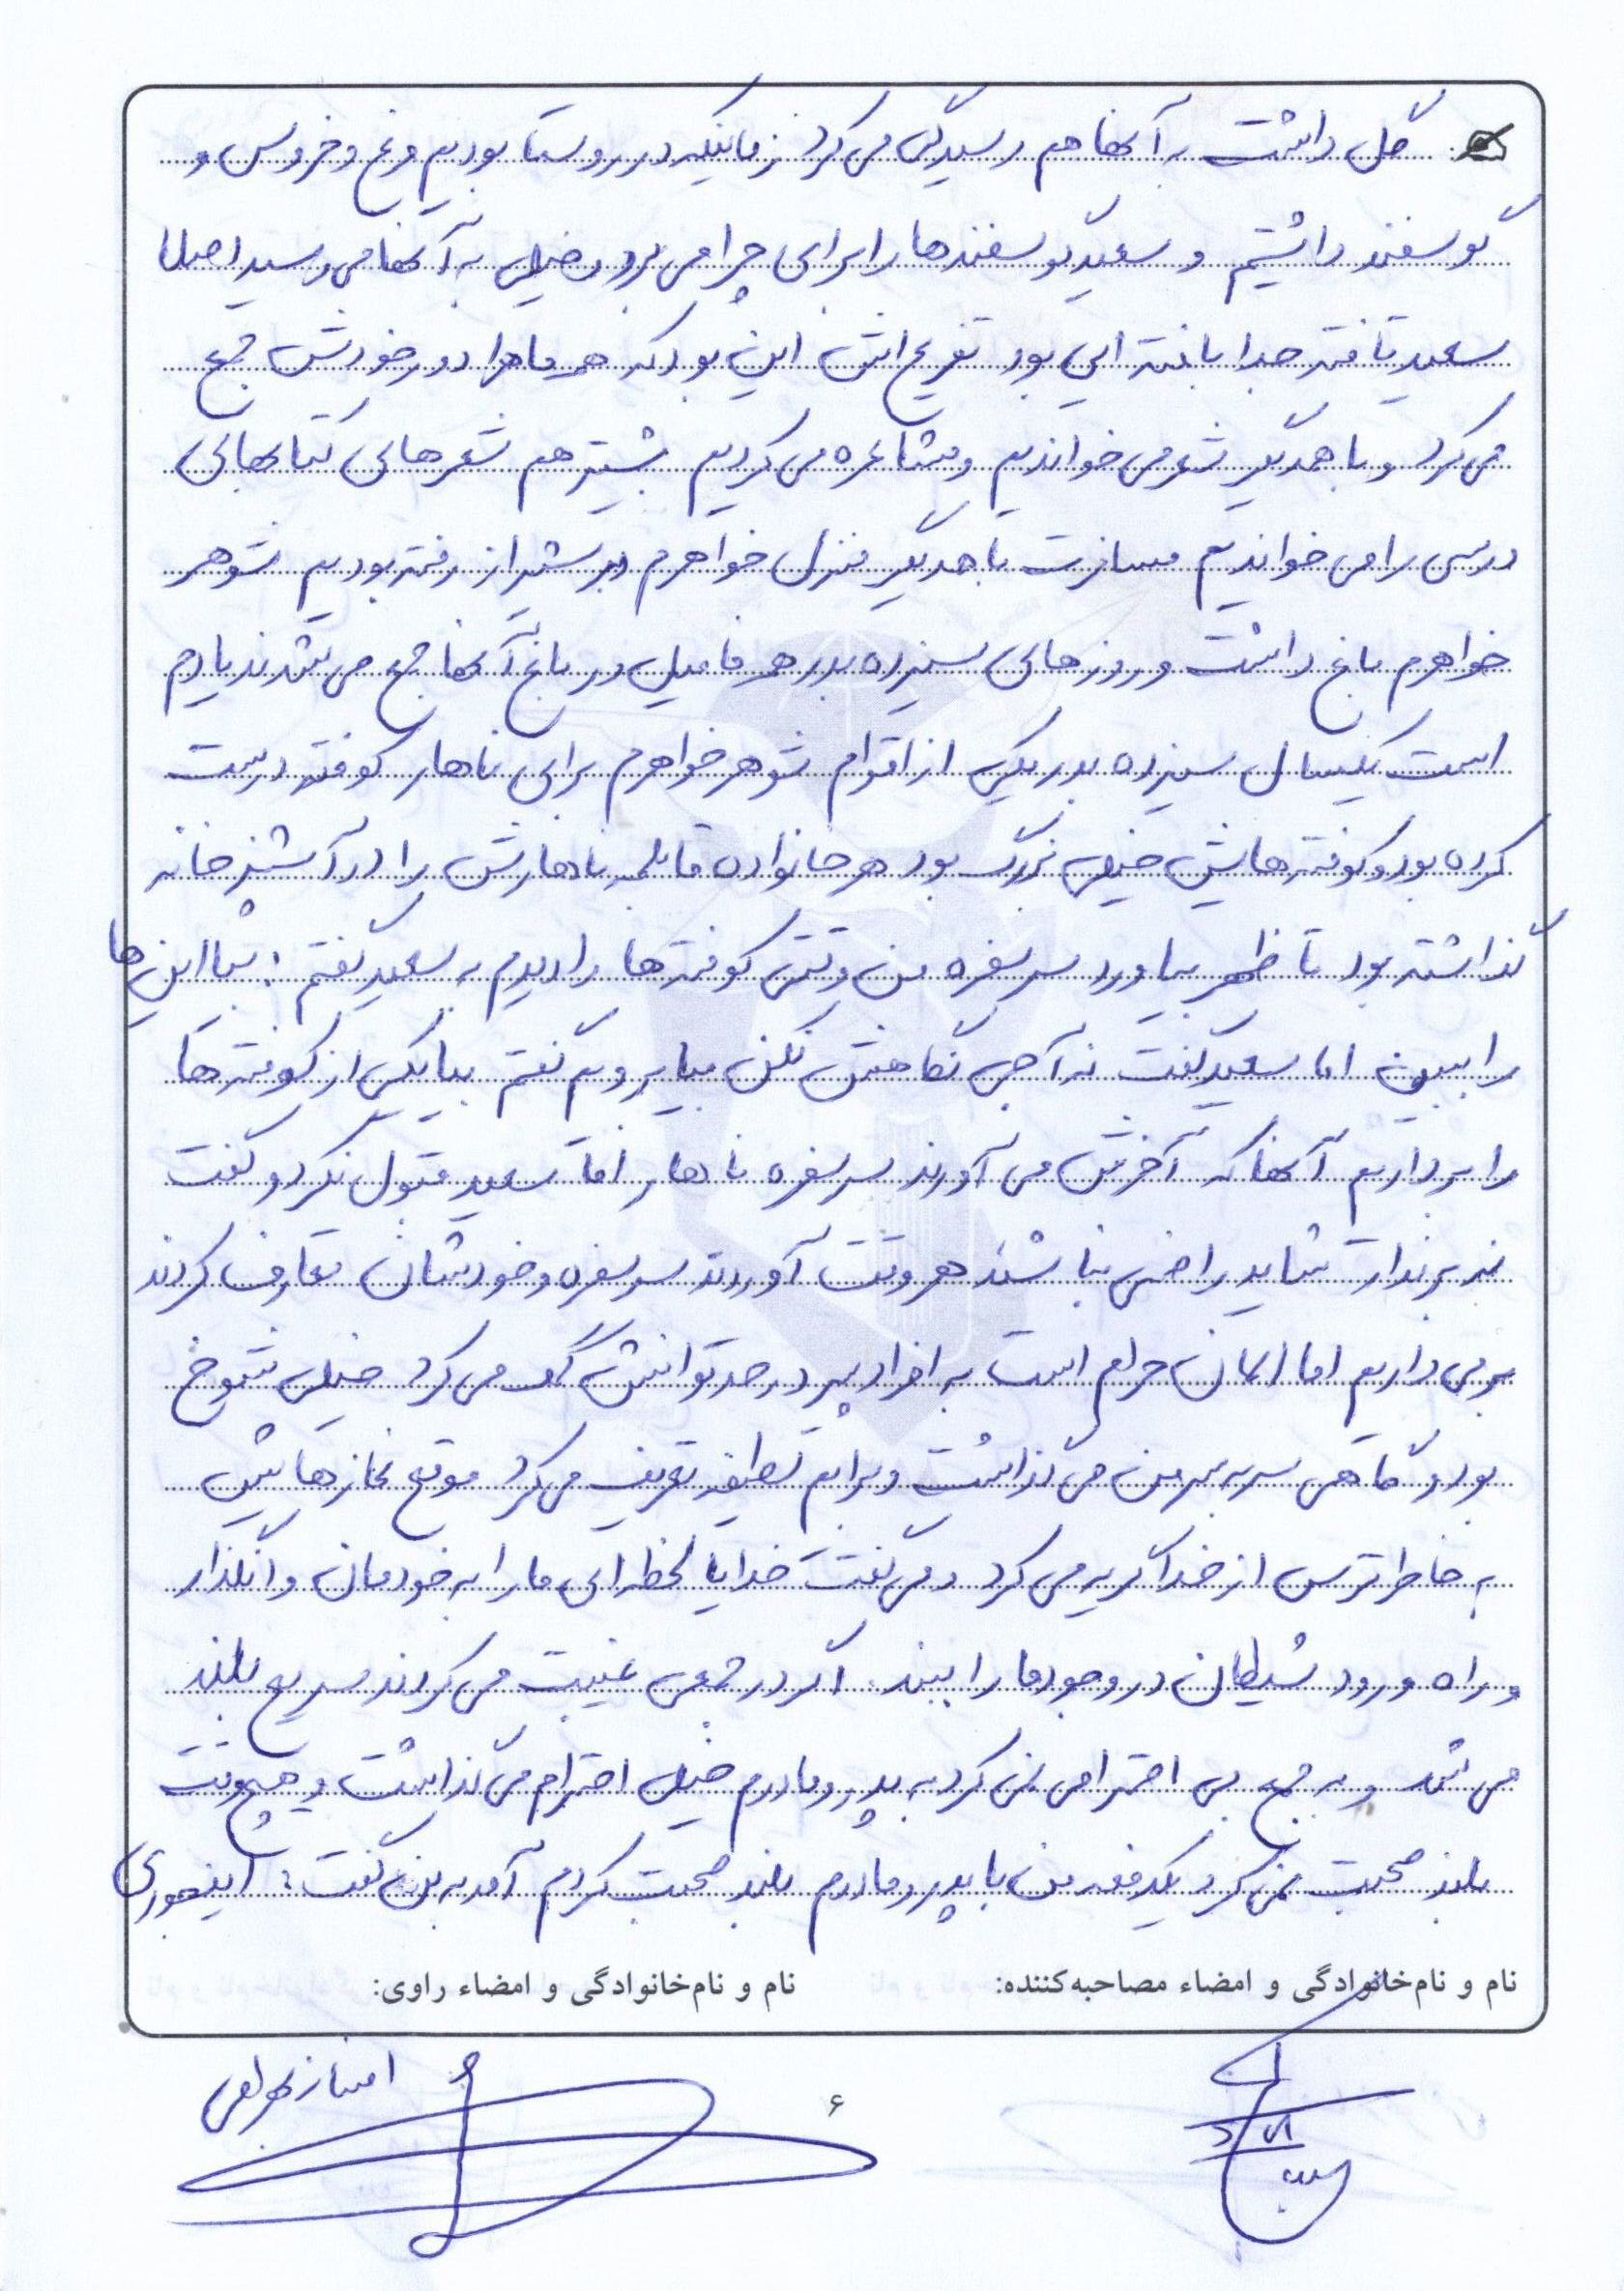 گل داشت به آنها هم رسیدگی می کرد زمانیکه در روستا بودیم مرغ و خروس و
گوسفند داشتیم و سعید گوسفندها را برای چرا می برد و خیلی به آنها می رسید اصلا
سعید تافته جدا بافته ایی بود تفریح اش این بود که همه ماها را دور خودش جمع
می کرد و با همدیگر شعر می خواندیم و مشاعره می کردیم بیشتر هم شعرهای کتابهای
درسی را می خواندیم مسافرت با همدیگر منزل خواهرم در شیراز رفته بودیم شوهر
خواهرم باغ داشت و روزهای سیزده بدر همه فامیل در باغ آنها جمع می شدند یادم
است یکسال سیزده بدر یکی از اقوام شوهر خواهرم برای ناهار کوفته درست
کرده بود و کوفته هایش خیلی بزرگ بود هر خانواده قابلمه ناهارش را در آشپزخانه
گذاشته بود تا ظهر بیاورد سر سفره من وقتی کوفته ها را دیدم به سعید گفتم: بیا این ها
را ببین اما سعید گفت نه آجی نگاهش نکن بیا برویم گفتم بیا یکی از کوفته ها
را برداریم آنها که آخرش می آورند سر سفره ناهار اما سعید قبول نکرد و گفت
نه برندار شاید راضی نباشند هر وقت آوردند سر سفره و خودشان تعارف کردند
برمی داریم اما الان حرام است به افراد پیر در حد توانش کمک می کرد خیلی شوخ
بود و گاهی سر به سر من می گذاشت و برایم لطیفه تعریف می کرد موقع نمازهایش
به خاطر ترس از خدا گریه می کرد و می گفت خدایا لحظه ایی ما را به خودمان وانگذار
و راه ورود شیطان در وجود ما را ببند. اگر در جمعی غیبت می کردند سریع بلند
می شد و به جمع بی احترامی نمی کرد به پدر و مادرم خیلی احترام می گذاشت و هیچ وقت
بلند صحبت نمی کرد یکدفعه من با پدر و مادرم بلند صحبت کردم آمد به من گفت: اینجوری
نام و نام‌خانوادگی و امضاء مصاحبه‌کننده: نام و نام‌خانوادگی و امضاء راوی:
۶